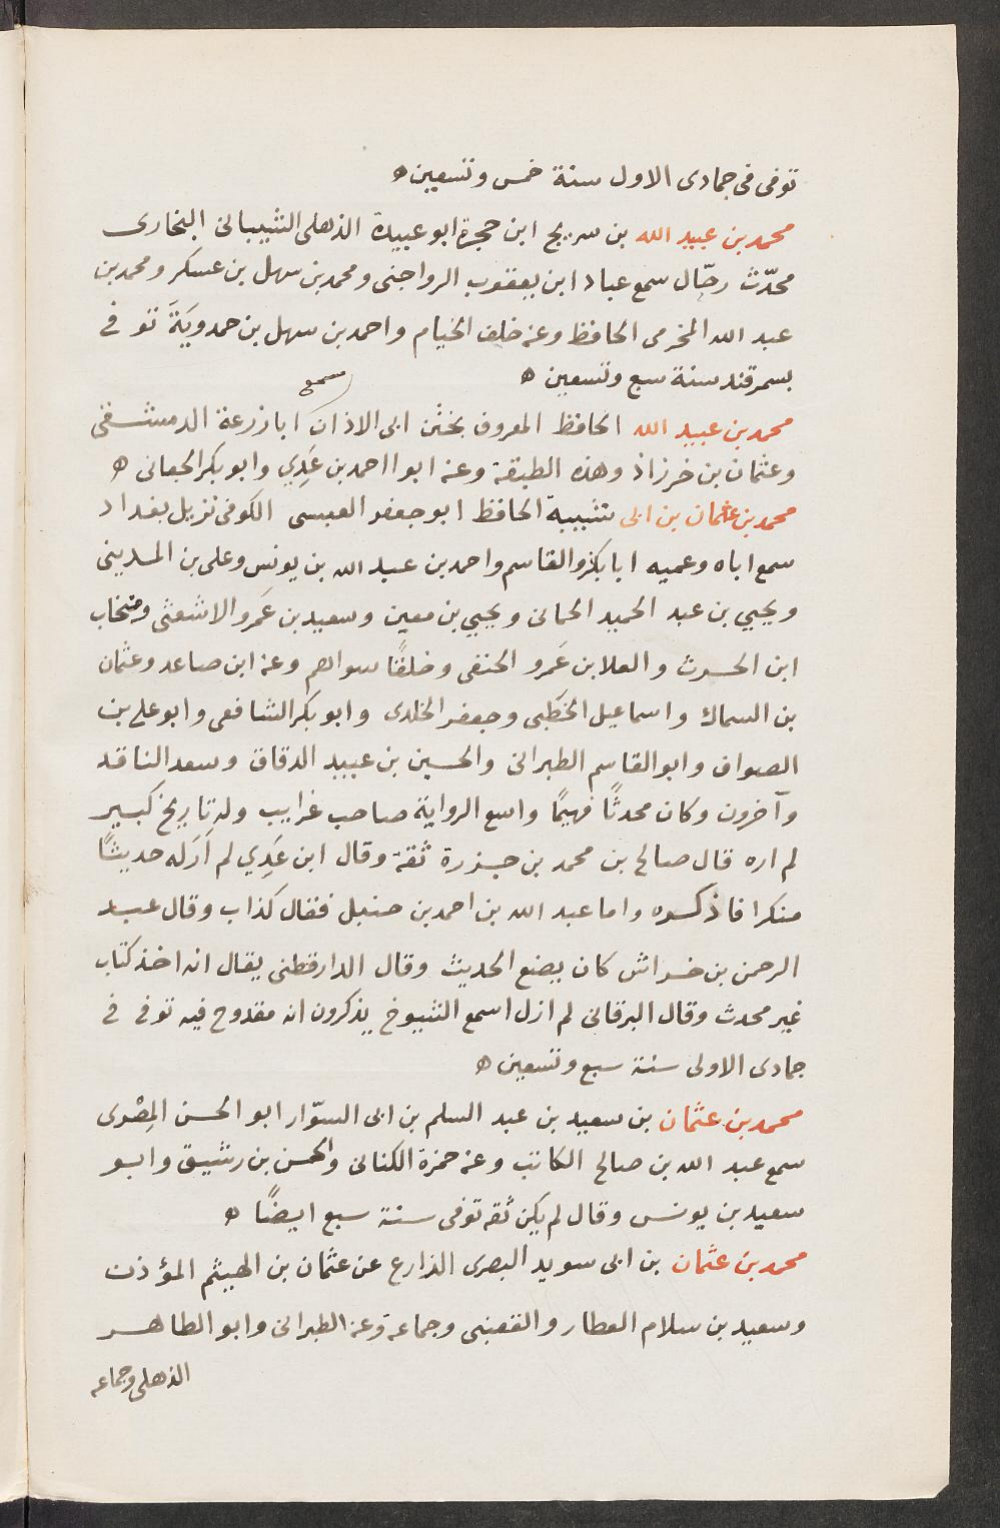 توفى فى جمادى الاول سنة خمس وتسعين ه
محمد بن عبيد الله بن سريج ابن حجرة ابو عبيدة الذهلى الشيبانى البخارى
محدّث رحّال سمع عباد ابن يعقوب الرواجنى ومحمد بن سهل بن عسكر ومحمد بن
عبد الله المخرمى الحافظ وعنه خلف الخيام واحمد بن سهل بن حمدويَة توفى
بسمرقند سنة سبع وتسعين ه
سمع
محمد بن عبيد الله الحافظ المعروف بختن ابى الاذان ابا زرعة الدمشقى
وعثمان بن خرزاذ وهذه الطبقة وعنه ابو ااحمد بن عَدِي وابو بكر الجعانى ه
محمد بن عثمان بن ابى شيبة الحافظ ابو جعفر العبسى الكوفى نزيل بغداد
سمع اباه وعميه ابا بكر والقاسم واحمد بن عبد الله بن يونس وعلى بن المدينى
ويحيي بن عبد الحميد الحمانى ويحيي بن معين وسعيد بن عَمرو الاشعثى ومنجاب
ابن الحرث والعلا بن عَمرو الحنفى وخلفًا سواهم وعنه ابن صاعد وعثمان
بن السماك واسماعيل الخطَبى وجعفر الخلدى وابو بكر الشافعى وابو على بن
الصواف وابو القاسم الطبرانى والحسين بن عبيد الدقاق وسعد الناقد
وآخرون وكان محدثًا فهيمًا واسع الرواية صاحب غرايب وله تاريخ كبير
لم اره قال صالح بن محمد بن جزرة ثقة وقال ابن عَدِي لم اَرَ له حديثًا
منكرا فاذكره واما عبد الله بن احمد بن حنبل فقال كذاب وقال عبد
الرحمن بن خراش كان يضع الحديث وقال الدارقطنى يقال انه اخذ كتاب
غير محدث وقال البرقانى لم ازل اسمع الشيوخ يذكرون انه مقدوح فيه توفى فى
جمادى الاولى سنة سبع وتسعين ه
محمد بن عثمان بن سعيد بن عبد السلم بن ابى السوّار ابو الحسن المِصْرى
سمع عبد الله بن صالح الكاتب وعنه حمزة الكنانى والحسن بن رشيق وابو
سعيد بن يونس وقال لم يكن ثقه توفى سنة سبع ايضًا ه
محمد بن عثمان بن ابى سويد البصرى الذارع عن عثمان بن الهيثم المؤذن
وسعيد بن سلام العطار والقعنبى وجماعة وعنه الطبرانى وابو الطاهر
الذهلى وجماعه